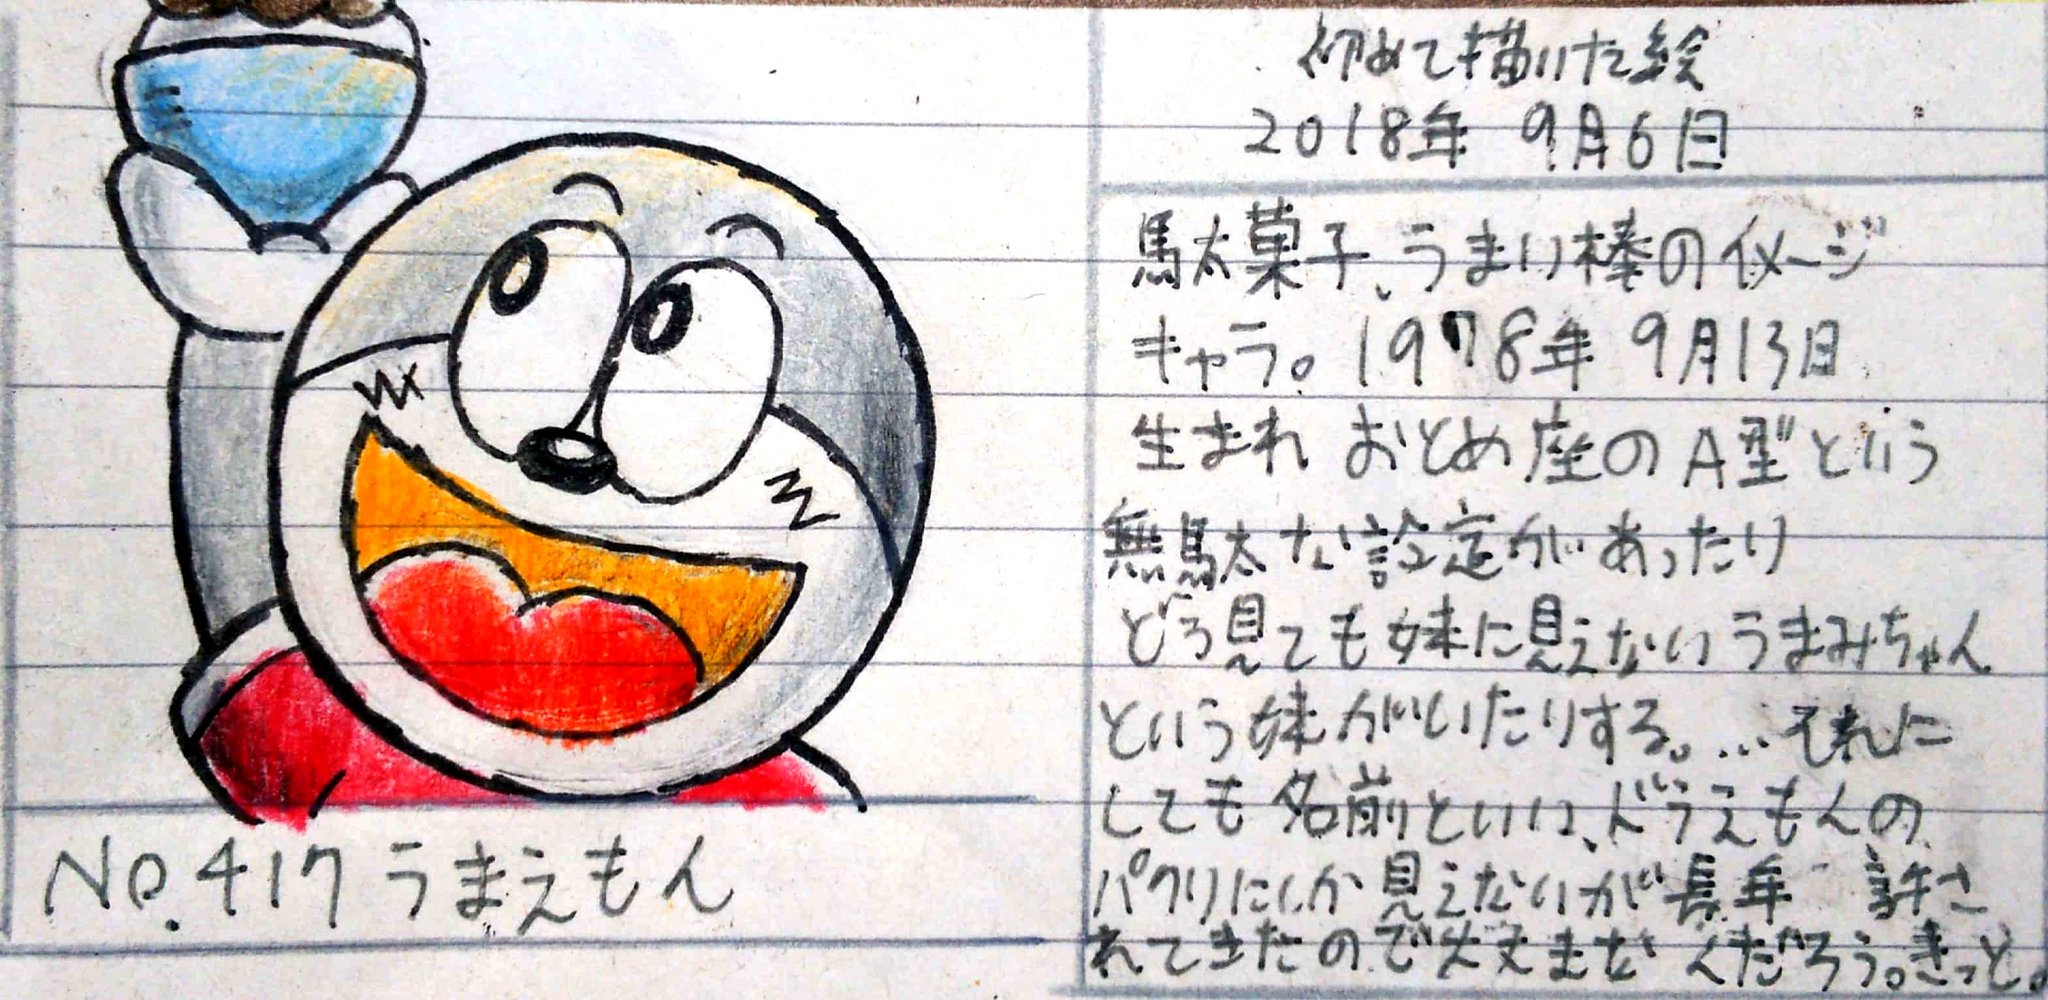 初めて描いた絵
2018年 9月6日
駄菓子、うまい棒のイメージ
キャラ。1978年 9月13日
生まれ おとめ座のA型という
無駄な設定があったり
どう見ても妹に見えないうまみちゃん
という妹がいたりする。…それに
しても名前といい、ドラえもんの
パクリにしか見えないが長年 許さ
れてきたので大丈まなくだろう。きっと。
No.417 うまえもん